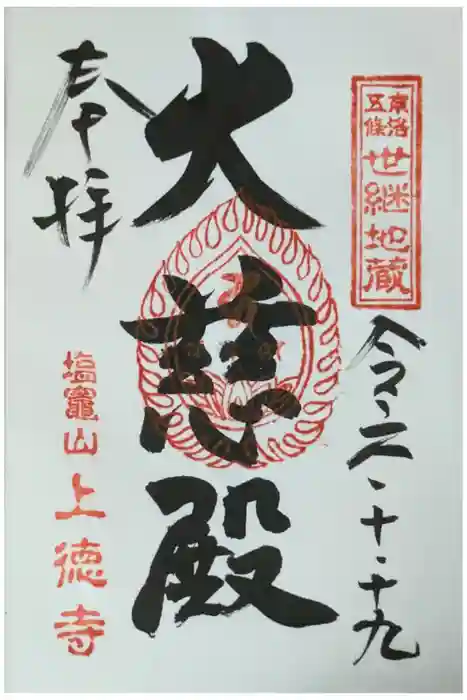 京洛五條
世継地蔵
令二・十・十九
大慈殿
奉拝
塩竈山
上徳寺